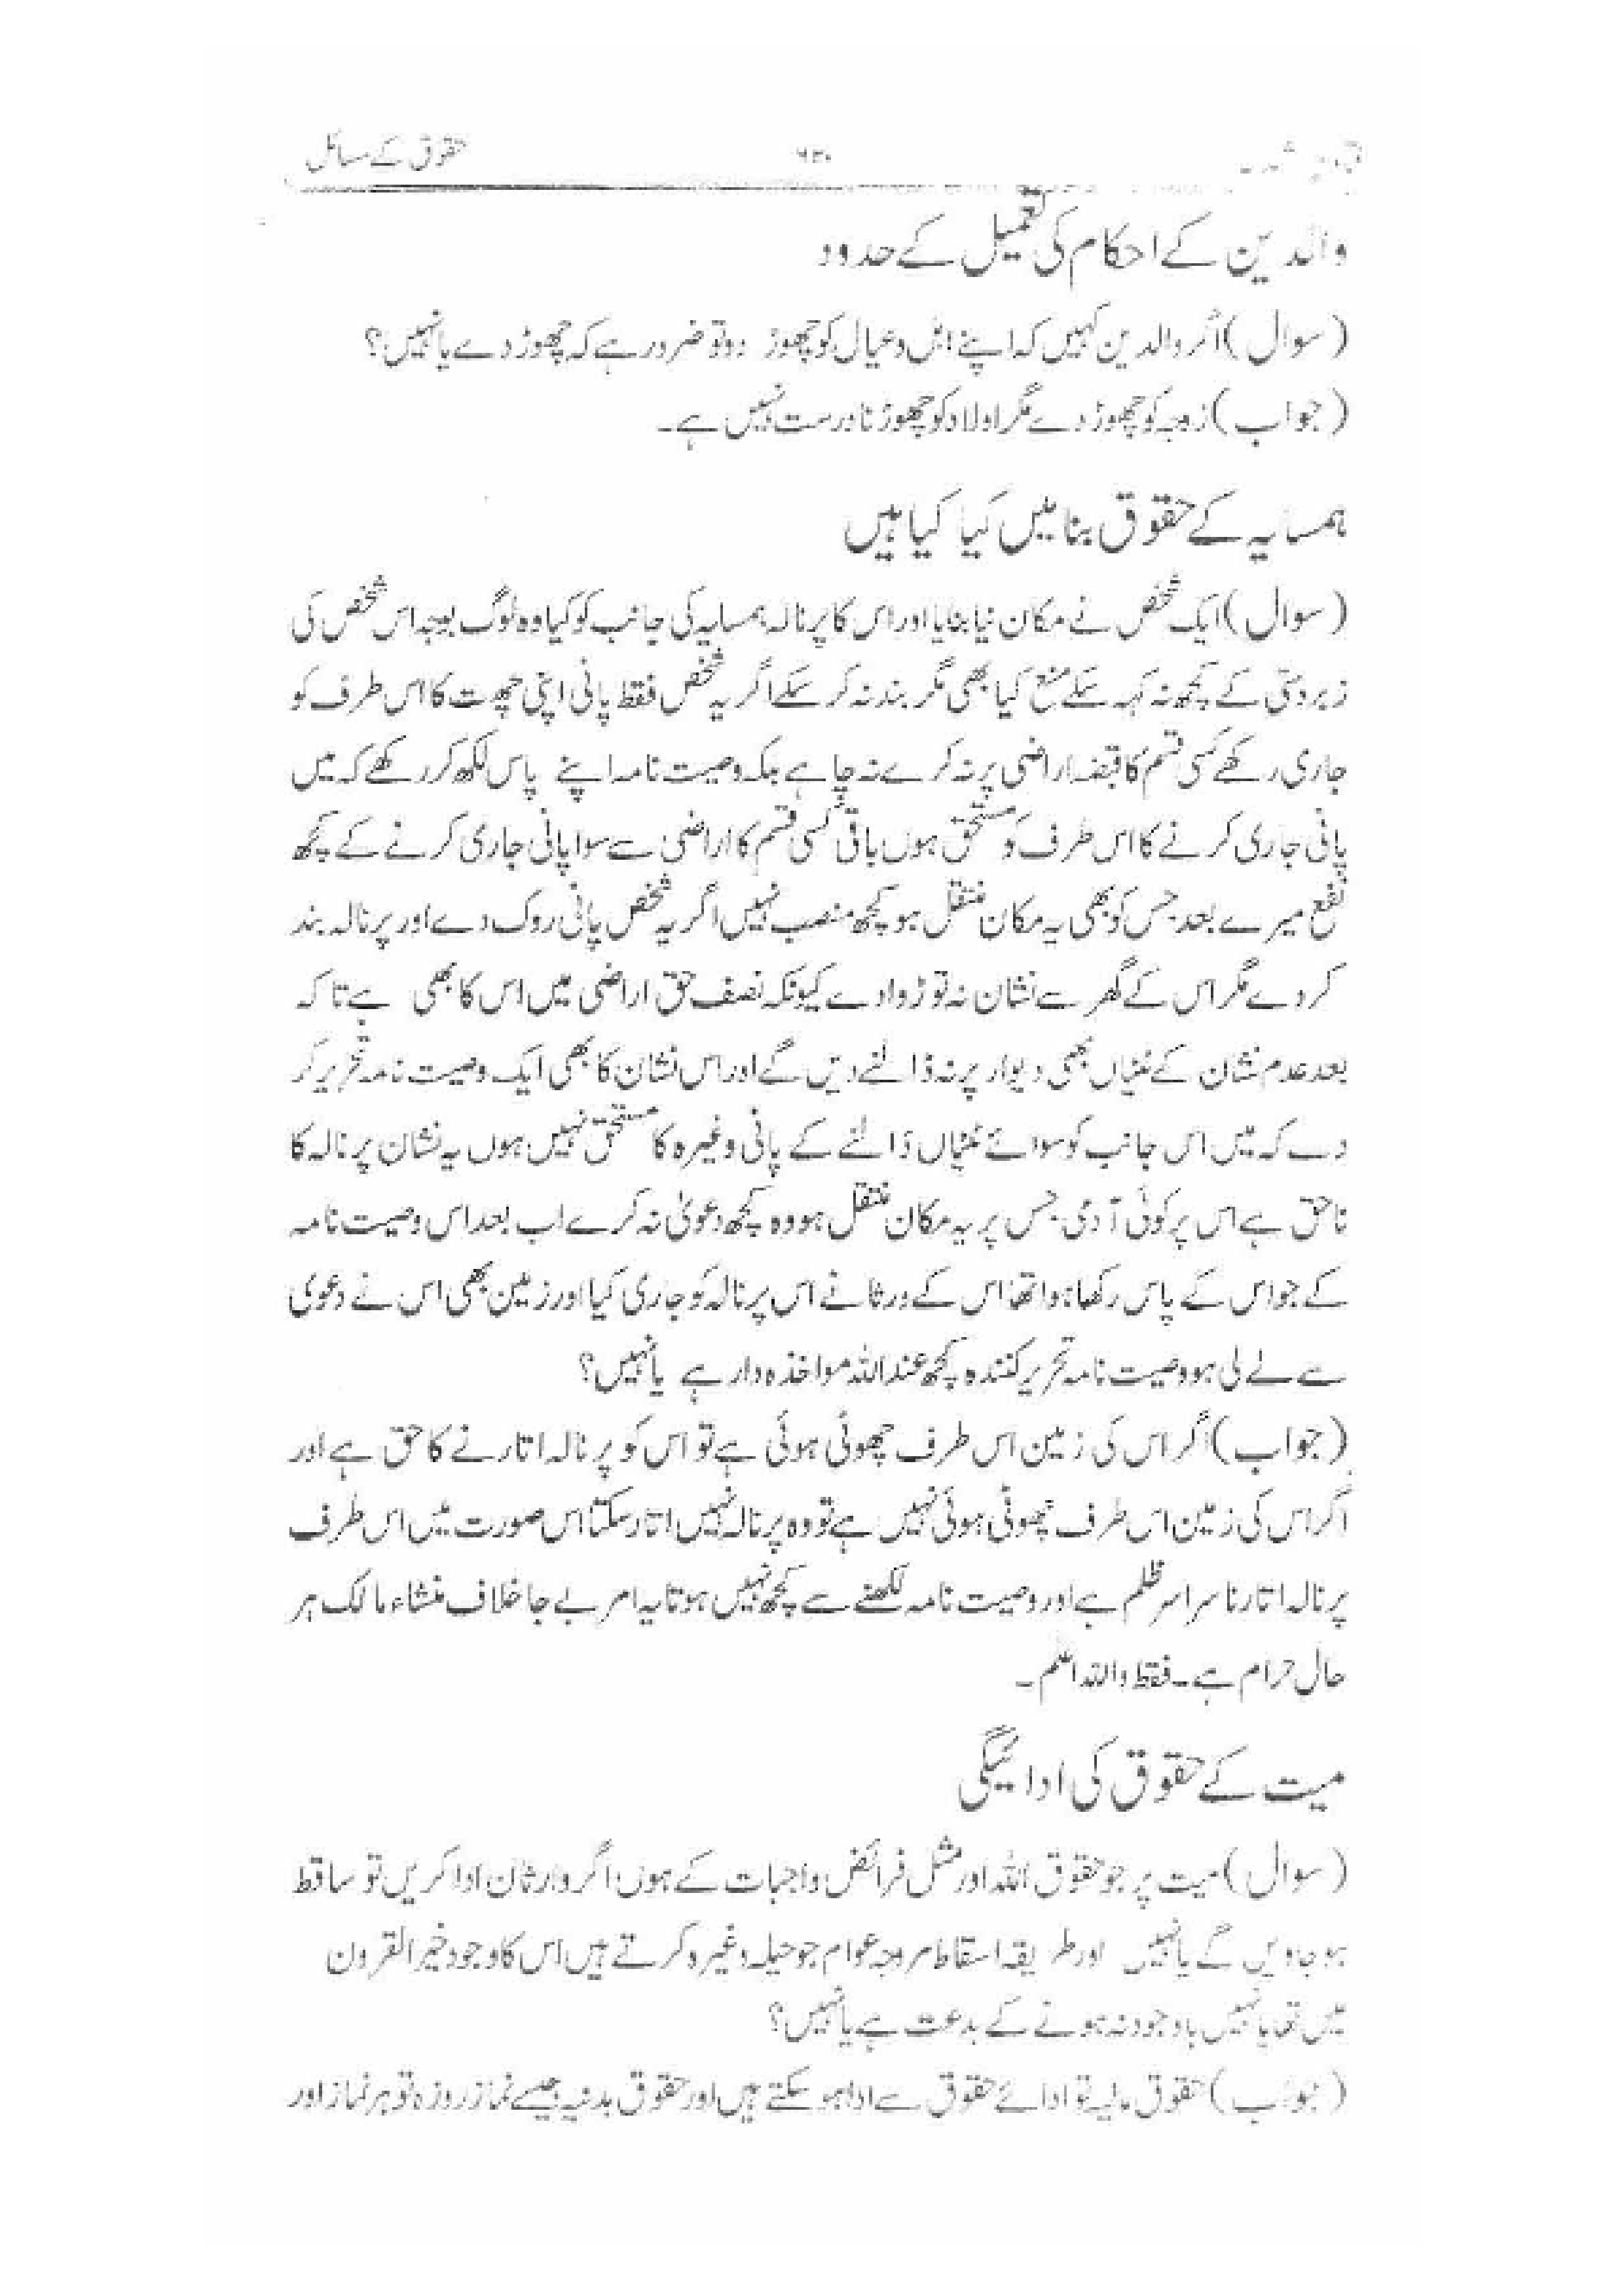 حقوق کے مسائل
والدین کے احکام کی تعمیل کے حدود
(سوال) اگر والدین کہیں کہ اپنے اہل وعیال کو چھوڑ دو تو ضرور ہے کہ چھوڑ دے یا نہیں؟
(جواب) زوجہ کو چھوڑ دے مگر اولاد کو چھوڑنا درست نہیں ہے۔
ہمسایہ کے حقوق بنا میں کیا کیا ہیں
(سوال) ایک شخص نے مکان نیا بنایا اور اس کا پرنالہ ہمسایہ کی جانب کو کیا وہ لوگ بوجہ اس شخص کی
زبردستی کے کچھ نہ کہہ سکے منع کیا بھی مگر بند نہ کر سکے اگر یہ شخص فقط پانی اپنی چھت کا اس طرف کو
جاری رکھے کسی قسم کا قبضہ اراضی پر نہ کرے نہ چاہے بلکہ وصیت نامہ اپنے پاس لکھ کر رکھے کہ میں
پانی جاری کرنے کا اس طرف کو مستحق ہوں باقی کسی قسم کا اراضی سے سوا پانی جاری کرنے کے کچھ
نفع میرے بعد جس کو بھی یہ مکان منتقل ہو کچھ منصب نہیں اگر یہ شخص پانی روک دے اور پرنالہ بند
کردے مگر اس کے گھر سے نشان نہ توڑوا دے کیونکہ نصف حق اراضی میں اس کا بھی ہے تا کہ
بعد عدم نشان کے بھی دیوار پر نہ ڈالنے دیں گے اور اس نشان کا بھی ایک وصیت نامہ تحریر کر
دے کہ میں اس جانب کو سوائے ڈالنے کے پانی وغیرہ کا مستحق نہیں ہوں یہ نشان پرنالہ کا
ناحق ہے اس پر کوئی آدمی جس پر یہ مکان منتقل ہو وہ کچھ دعویٰ نہ کرے اب بعد اس وصیت نامہ
کے جو اس کے پاس رکھا ہوا تھا اس کے ورثا نے اس پرنالہ کو جاری کیا اور زمین بھی اس نے دعوی
سے لے لی ہو وصیت نامہ تحریر کنندہ کچھ عنداللہ مواخذہ دار ہے یا نہیں؟
(جواب) اگر اس کی زمین اس طرف چھوٹی ہوئی ہے تو اس کو پرنالہ اتارنے کا حق ہے اور
اگر اس کی زمین اس طرف چھوٹی ہوئی نہیں ہے تو وہ پرنالہ نہیں اتار سکتا اس صورت میں اس طرف
پرنالہ اتارنا سراسر ظلم ہے اور وصیت نامہ لکھنے سے کچھ نہیں ہوتا یہ امر بے جا خلاف منشاء مالک ہر
حال حرام ہے۔ فقط واللہ اعلم۔
میت کے حقوق کی ادائیگی
(سوال) میت پر جو حقوق اللہ اور مثل فرائض واجبات کے ہوں اگر وارثان ادا کریں تو ساقط
ہو جاویں گے یا نہیں اور طریقہ اسقاط مروجہ عوام جو حیلہ وغیرہ کرتے ہیں اس کا وجود خیر القرون
میں تھا یا نہیں باوجود نہ ہونے کے بدعت ہے یا نہیں؟
(جواب) حقوق مالیہ تو ادائے حقوق سے ادا ہو سکتے ہیں اور حقوق بدنیہ جیسے نماز روزہ تو ہر نماز اور